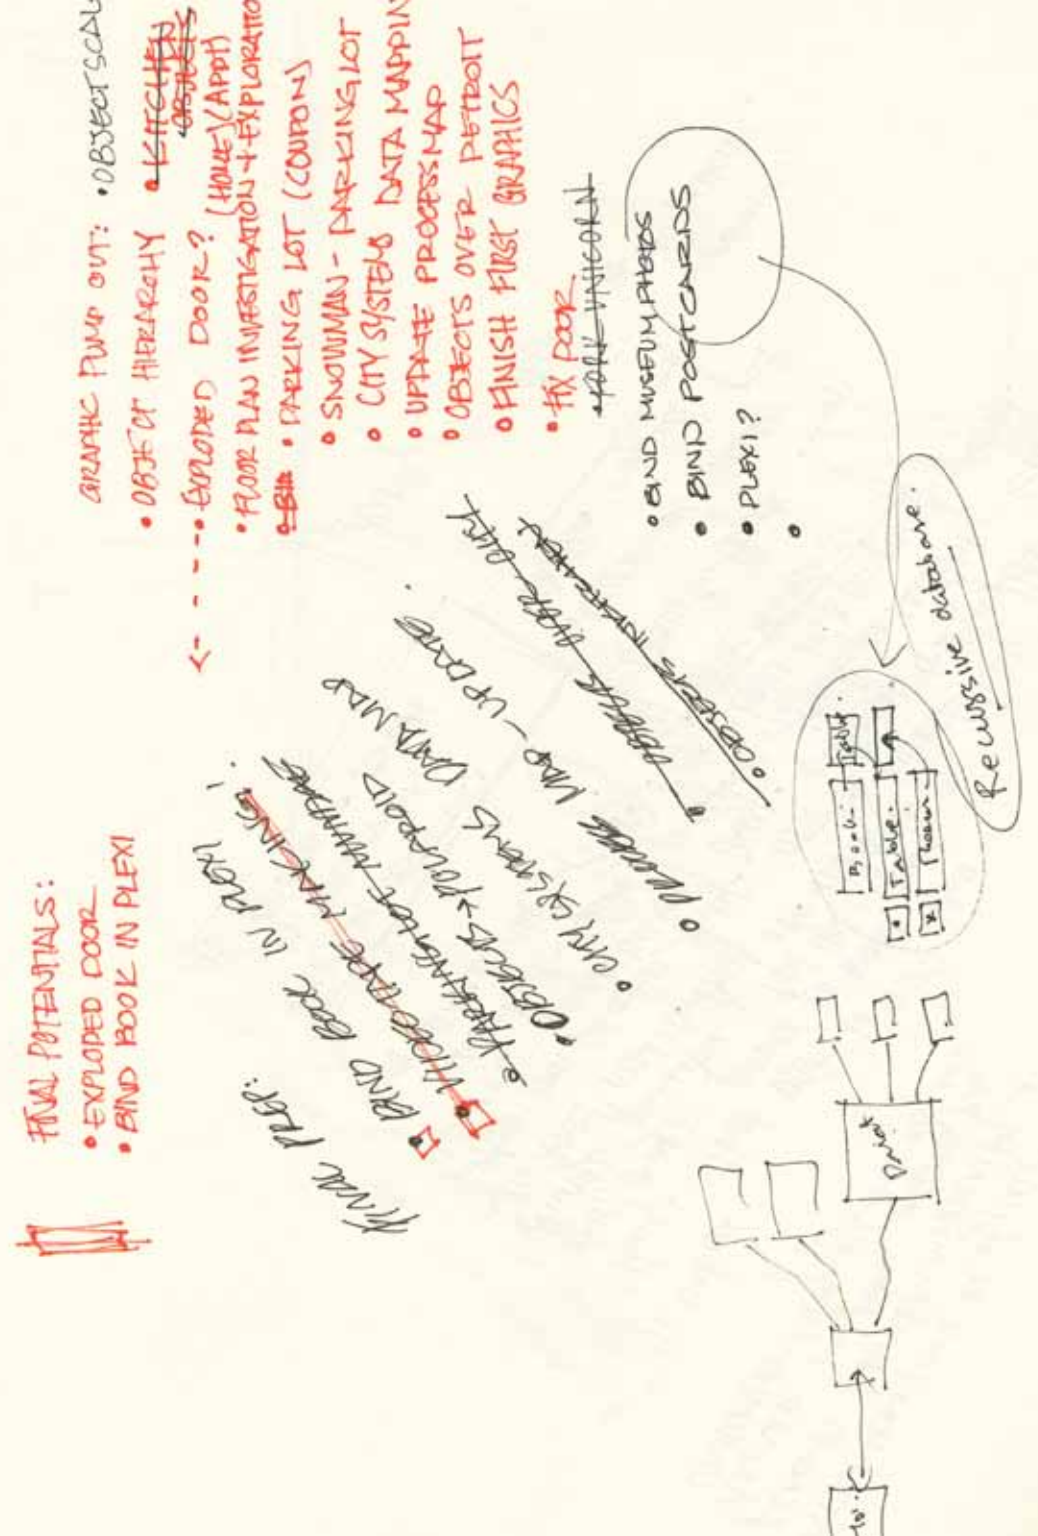 FINAL POTENTIALS:
• EXPLODED DOOR
• BIND BOOK IN PLEXI
GRAPHIC PUMP OUT:
• OBJECT SCAL
• OBJECT HIERARCHY
• KITCHEN
OBJECTS
• EXPLODED DOOR? (HOME) (APPT)
• FLOOR PLAN INVESTIGATION + EXPLORATIO
• PARKING LOT (COUPON)
• SNOWMAN - PARKING LOT
• CITY SYSTEMS DATA MAPPIN
• UPDATE PROCESS MAP
• OBJECTS OVER DETROIT
• FINISH FIRST GRAPHICS
• FIX DOOR
UNICORN
• BIND MUSEUM PHOTOS
• BIND POSTCARDS
• PLEXI?
•
FINAL PREP:
• BIND BOOK IN PLEXI
• VIDEO TAPE MAKING!
• PARKING LOT
• OBJECTS → POLAROID
• CITY SYSTEMS DATA MAP
• PROCESS MAP - UPDATE.
• OBJECTS OVER
• OBJECTS
Recussive database.
Book. Table.
Table.
Room.
Print